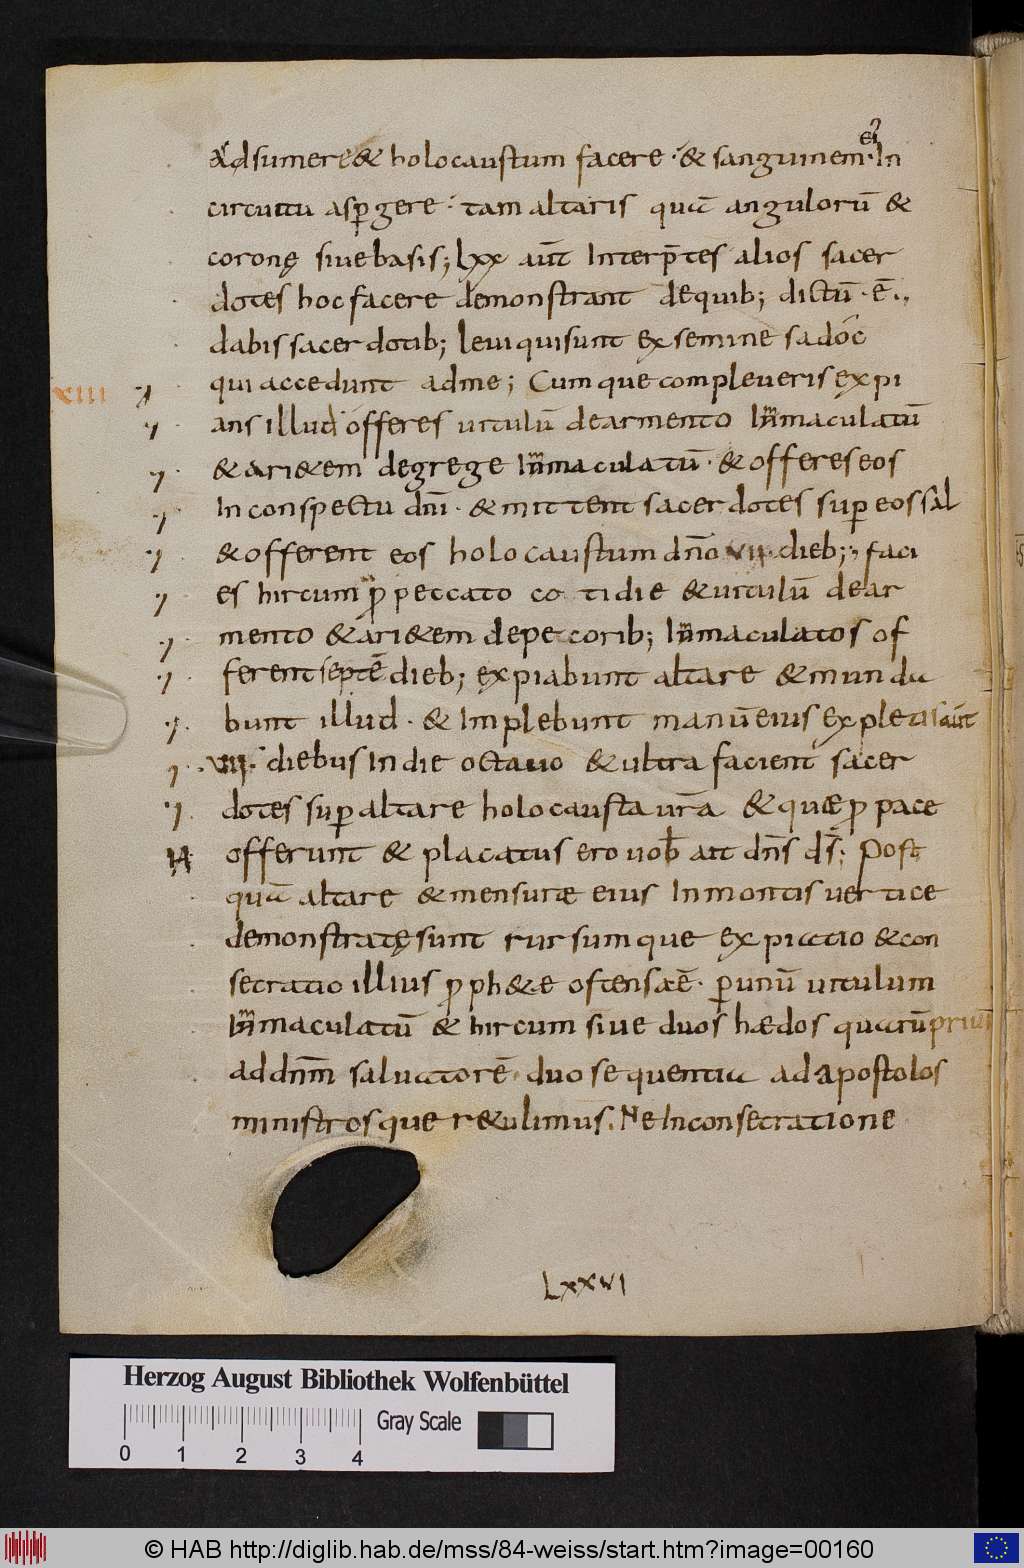 adsumere & holocaustum facere · & sanguinem · ei(us) In
circuitu asp̱gere · tam altaris quā angulorū &
coronę siue basis; lxx aūt Interp̄tes alios sacer
dotes hoc facere demonstrant de quib; dictū · ē ·,
dabis sacerdotib; leui qui sunt ex semine sadoc
xiii qui accedunt ad me; Cum que compleueris expi
ans illud offeres uitulū de armento Inmaculatū
& ari&em de grege Inmaculatū · & offeres eos
In conspectu dn̄i · & mittent sacerdotes sup̱ eos sal
& offerent eos holocaustum dn̄o vii · dieb;, faci
es hircum ꝓ peccato cotidie & uitulū de ar
mento & ari&em de pecorib; Inmaculatos of
ferent septē dieb; expiabunt altare & munda
bunt illud · & Implebunt manū eius expletis aūt
· vii · diebus In die octauo & ultra facient sacer
dotes sup̱ altare holocausta ur̄a & quæ ꝓ pace
offerunt & placatus ero uob̄ ait dn̄s ds̄; Post
quā altare & mensuræ eius In montis uertice
demonstratę sunt rursumque expiatio & con
secratio illius ꝓph&æ ostensa ē · p̱ unū uitulum
Inmaculatū & hircum siue duos hædos quarū priū
ad dn̄m saluatorē · duo sequentia ad apostolos
ministrosque r&ulimus. Ne In consecratione
Lxxvi
Herzog August Bibliothek Wolfenbüttel
Gray Scale
0 1 2 3 4
© HAB http://diglib.hab.de/mss/84-weiss/start.htm?image=00160